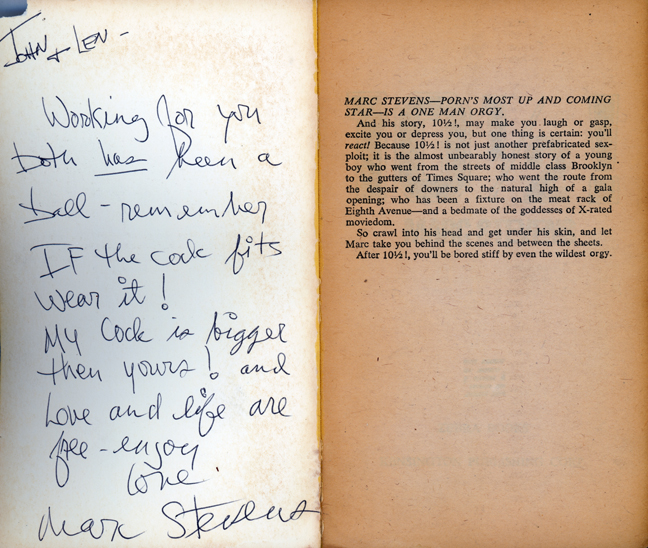 JOHN + LEN -
Working for you
both has been a
Ball - remember
IF the cock fits
wear it!
My Cock is bigger
then yours! and
Love and life are
free - enjoy
Love.
Marc Stevens
MARC STEVENS—PORN'S MOST UP AND COMING
STAR—IS A ONE MAN ORGY.
And his story, 10½!, may make you laugh or gasp,
excite you or depress you, but one thing is certain: you'll
react! Because 10½! is not just another prefabricated sex-
ploit; it is the almost unbearably honest story of a young
boy who went from the streets of middle class Brooklyn
to the gutters of Times Square; who went the route from
the despair of downers to the natural high of a gala
opening; who has been a fixture on the meat rack of
Eighth Avenue—and a bedmate of the goddesses of X-rated
moviedom.
So crawl into his head and get under his skin, and let
Marc take you behind the scenes and between the sheets.
After 10½!, you'll be bored stiff by even the wildest orgy.